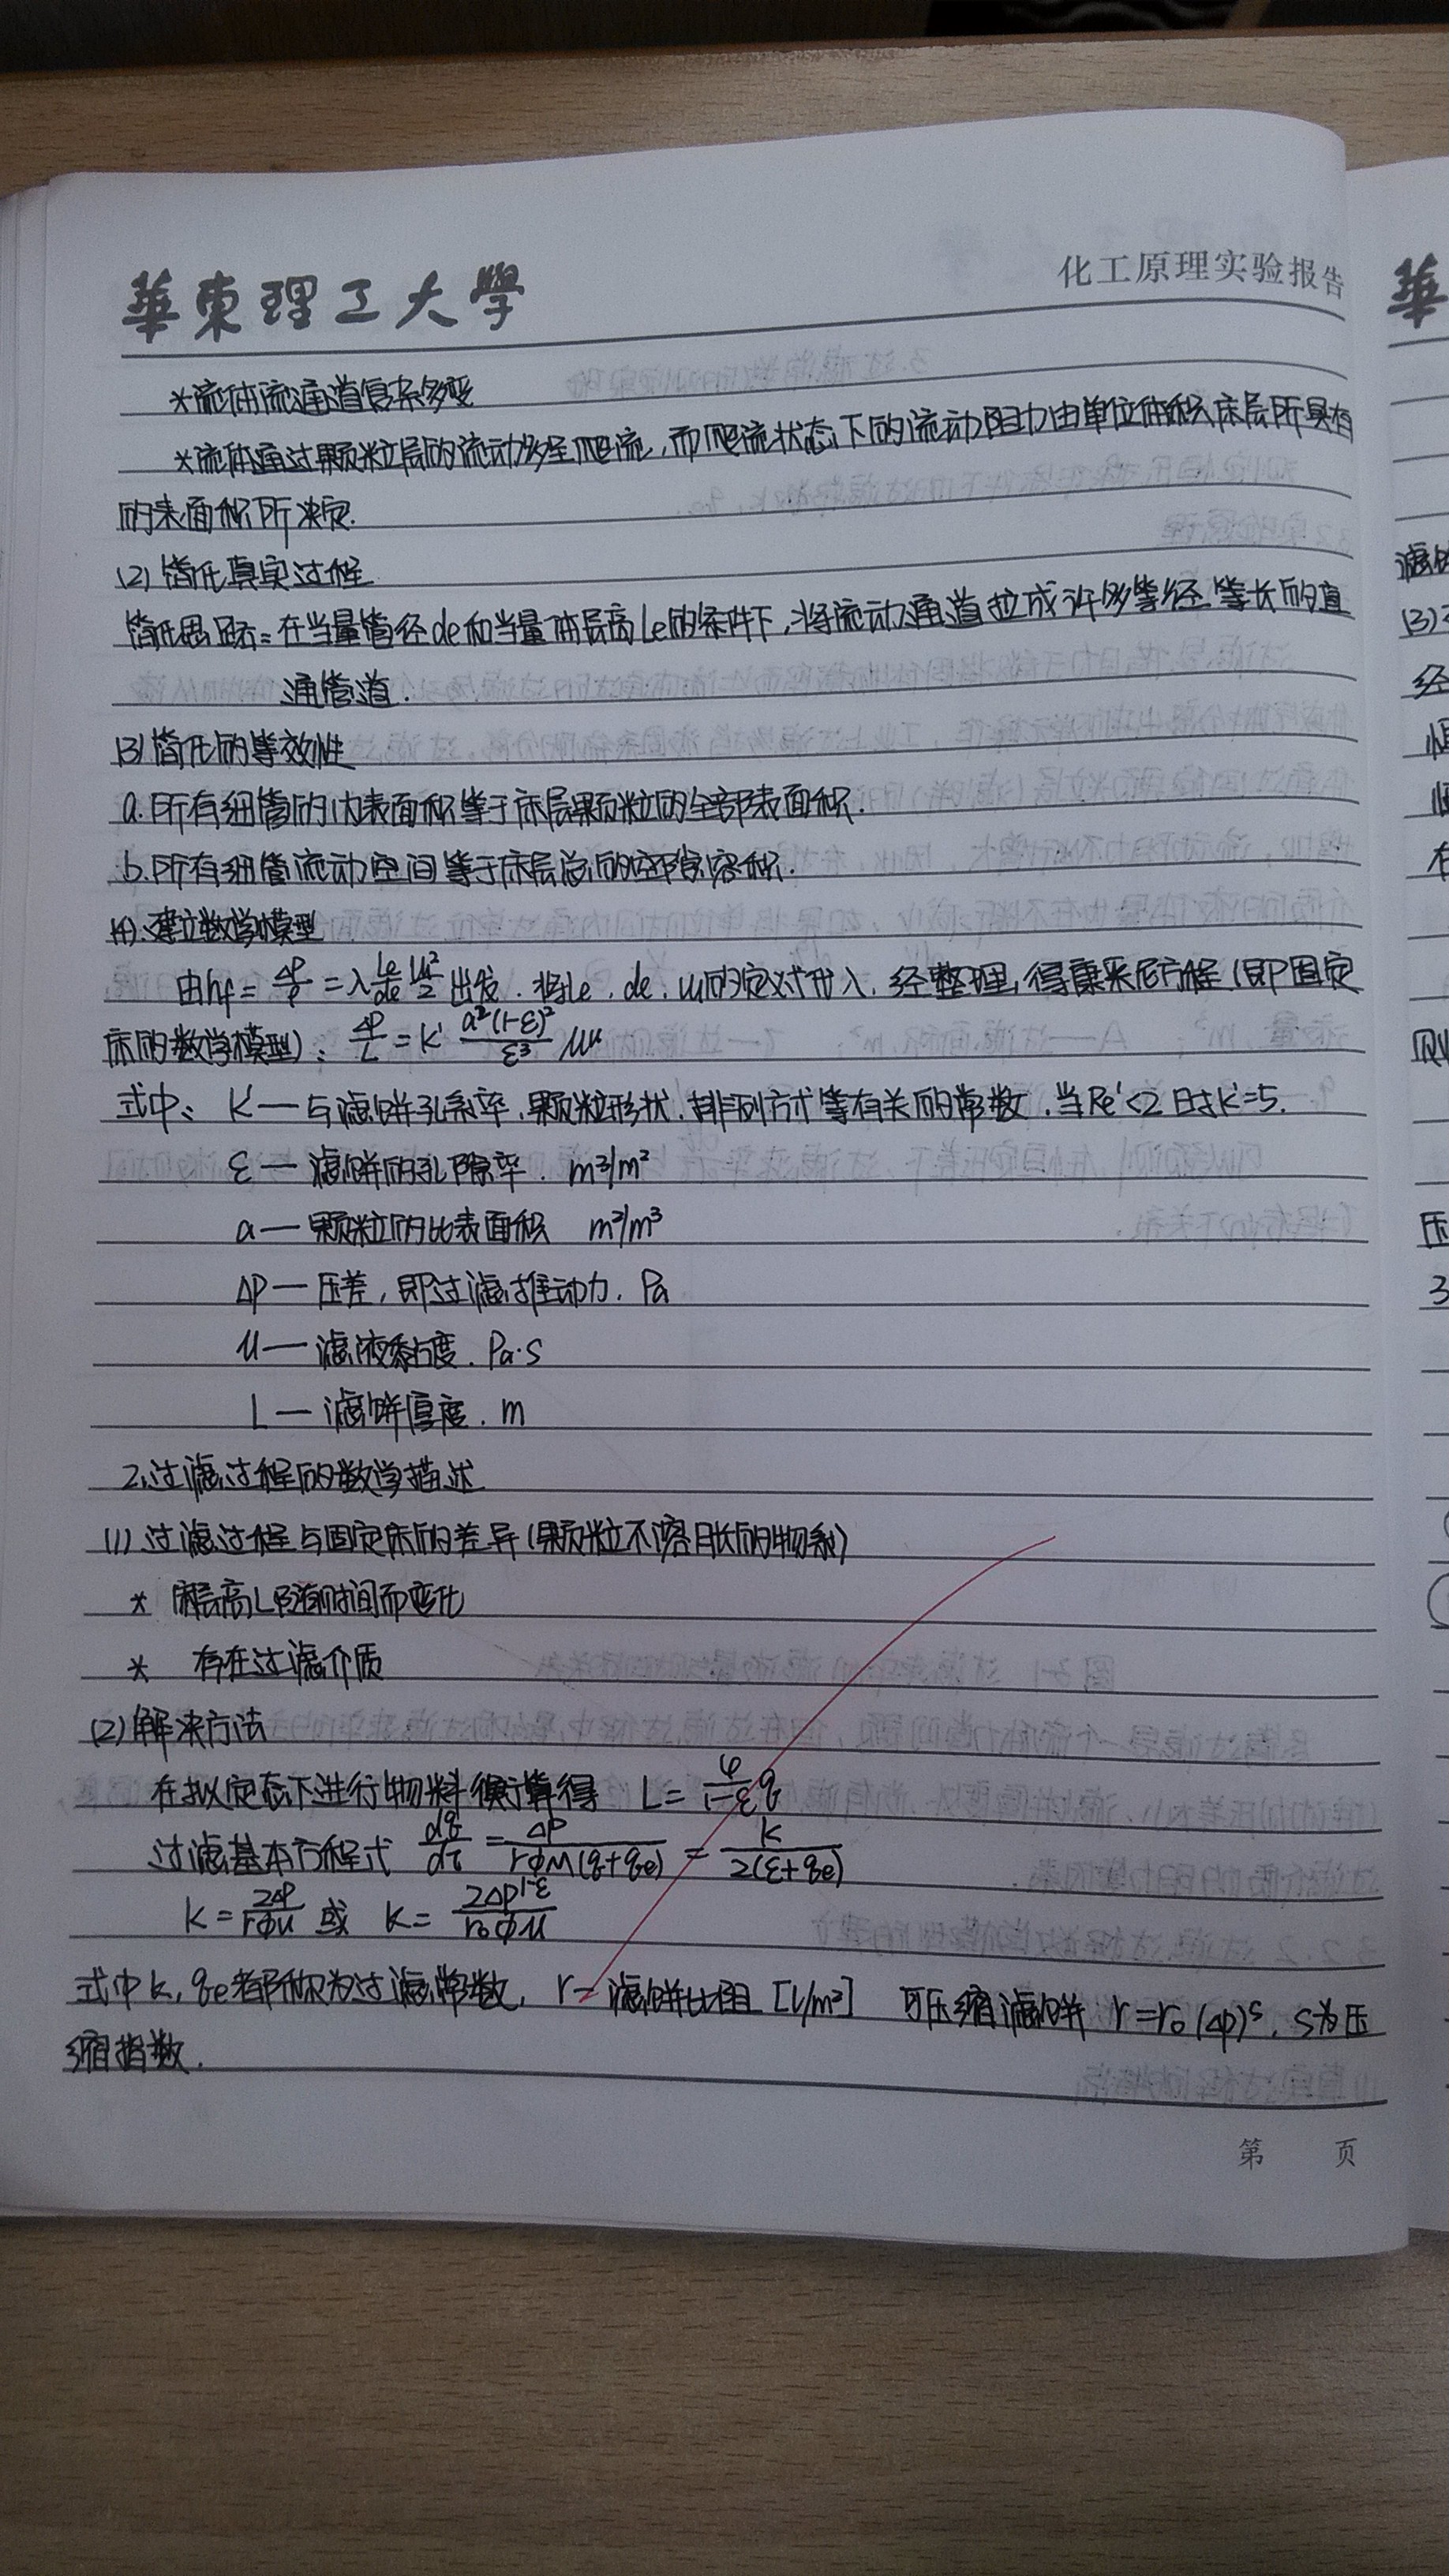 華東理工大學
化工原理实验报告
*流体流通道复杂多变
*流体通过颗粒层的流动多呈爬流,而爬流状态下的流动阻力由单位体积床层所具有
的表面积所决定.
(2) 简化真实过程
简化思路:在当量管径de和当量床层高Le的条件下,将流动通道拉成许多等径等长的直
通管道.
(3) 简化的等效性
a.所有细管的内表面积等于床层颗粒的全部表面积.
b.所有细管流动空间等于床层总的空隙容积.
(4).建立数学模型
由hf = ΔP/ρ = λ Le/de u₁²/2 出发.将Le.de.u₁的定义式代入.经整理,得康采尼方程(即固定
床的数学模型): ΔP/L = K' a²(1-ε)²/ε³ μu
式中: K'—与滤饼孔系率.颗粒形状.排列方式等有关的常数.当Re'<2时K'=5.
ε — 滤饼的孔隙率. m³/m²
a — 颗粒的比表面积 m²/m³
ΔP — 压差,即过滤推动力. Pa
μ — 滤液黏度. Pa·s
L — 滤饼厚度. m
2.过滤过程的数学描述
(1) 过滤过程与固定床的差异(颗粒不溶胀的物系)
* 床层高L随时间而变化
* 存在过滤介质
(2) 解决方法
在拟定态下进行物料衡算得 L = φ/(1-ε) q
过滤基本方程式 dq/dτ = ΔP/(rφμ(q+qe)) = k/(2(ε+qe))
K = 2ΔP/(rφμ) 或 K = 2ΔP^(1-ε)/(r₀φμ)
式中k,qe都称为过滤常数, r—滤饼比阻 [1/m²] 可压缩滤饼 r=r₀(ΔP)^s. S为压
缩指数.
第 页
華